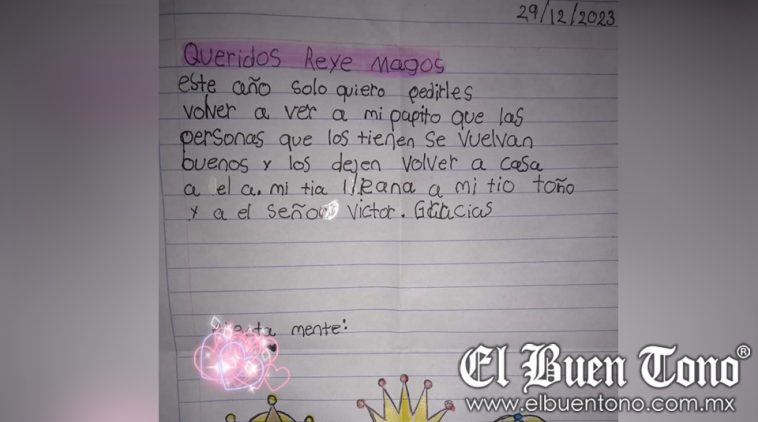 29/12/2023
Queridos Reye Magos
este año solo quiero pedirles
volver a ver a mi papito que las
personas que los tienen se vuelvan
buenos y los dejen volver a casa
a el a. mi tia a mi tio toño
y a el señor victor. Gracias
mente:
El Buen Tono®
www.elbuentono.com.mx